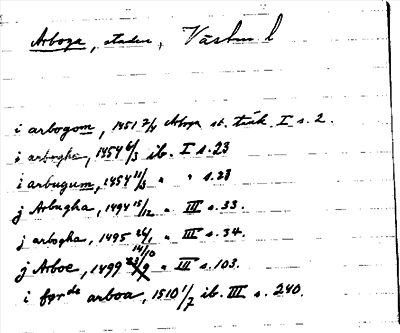 Arboga, staden, Västm l
i arbogom, 1451 2/4 Arboga st. tänk. I s. 2.
i arbogha, 1454 6/3 ib. I s. 23
i arbugum, 1454 11/3 " " s. 28
j Arbugha, 1494 15/12 " III s. 33.
j arbogha, 1495 26/1 " III s. 34.
j Arboe, 1499 14/10 " III s. 103.
i fgrde arboa, 1510 1/7 ib. III s. 240.